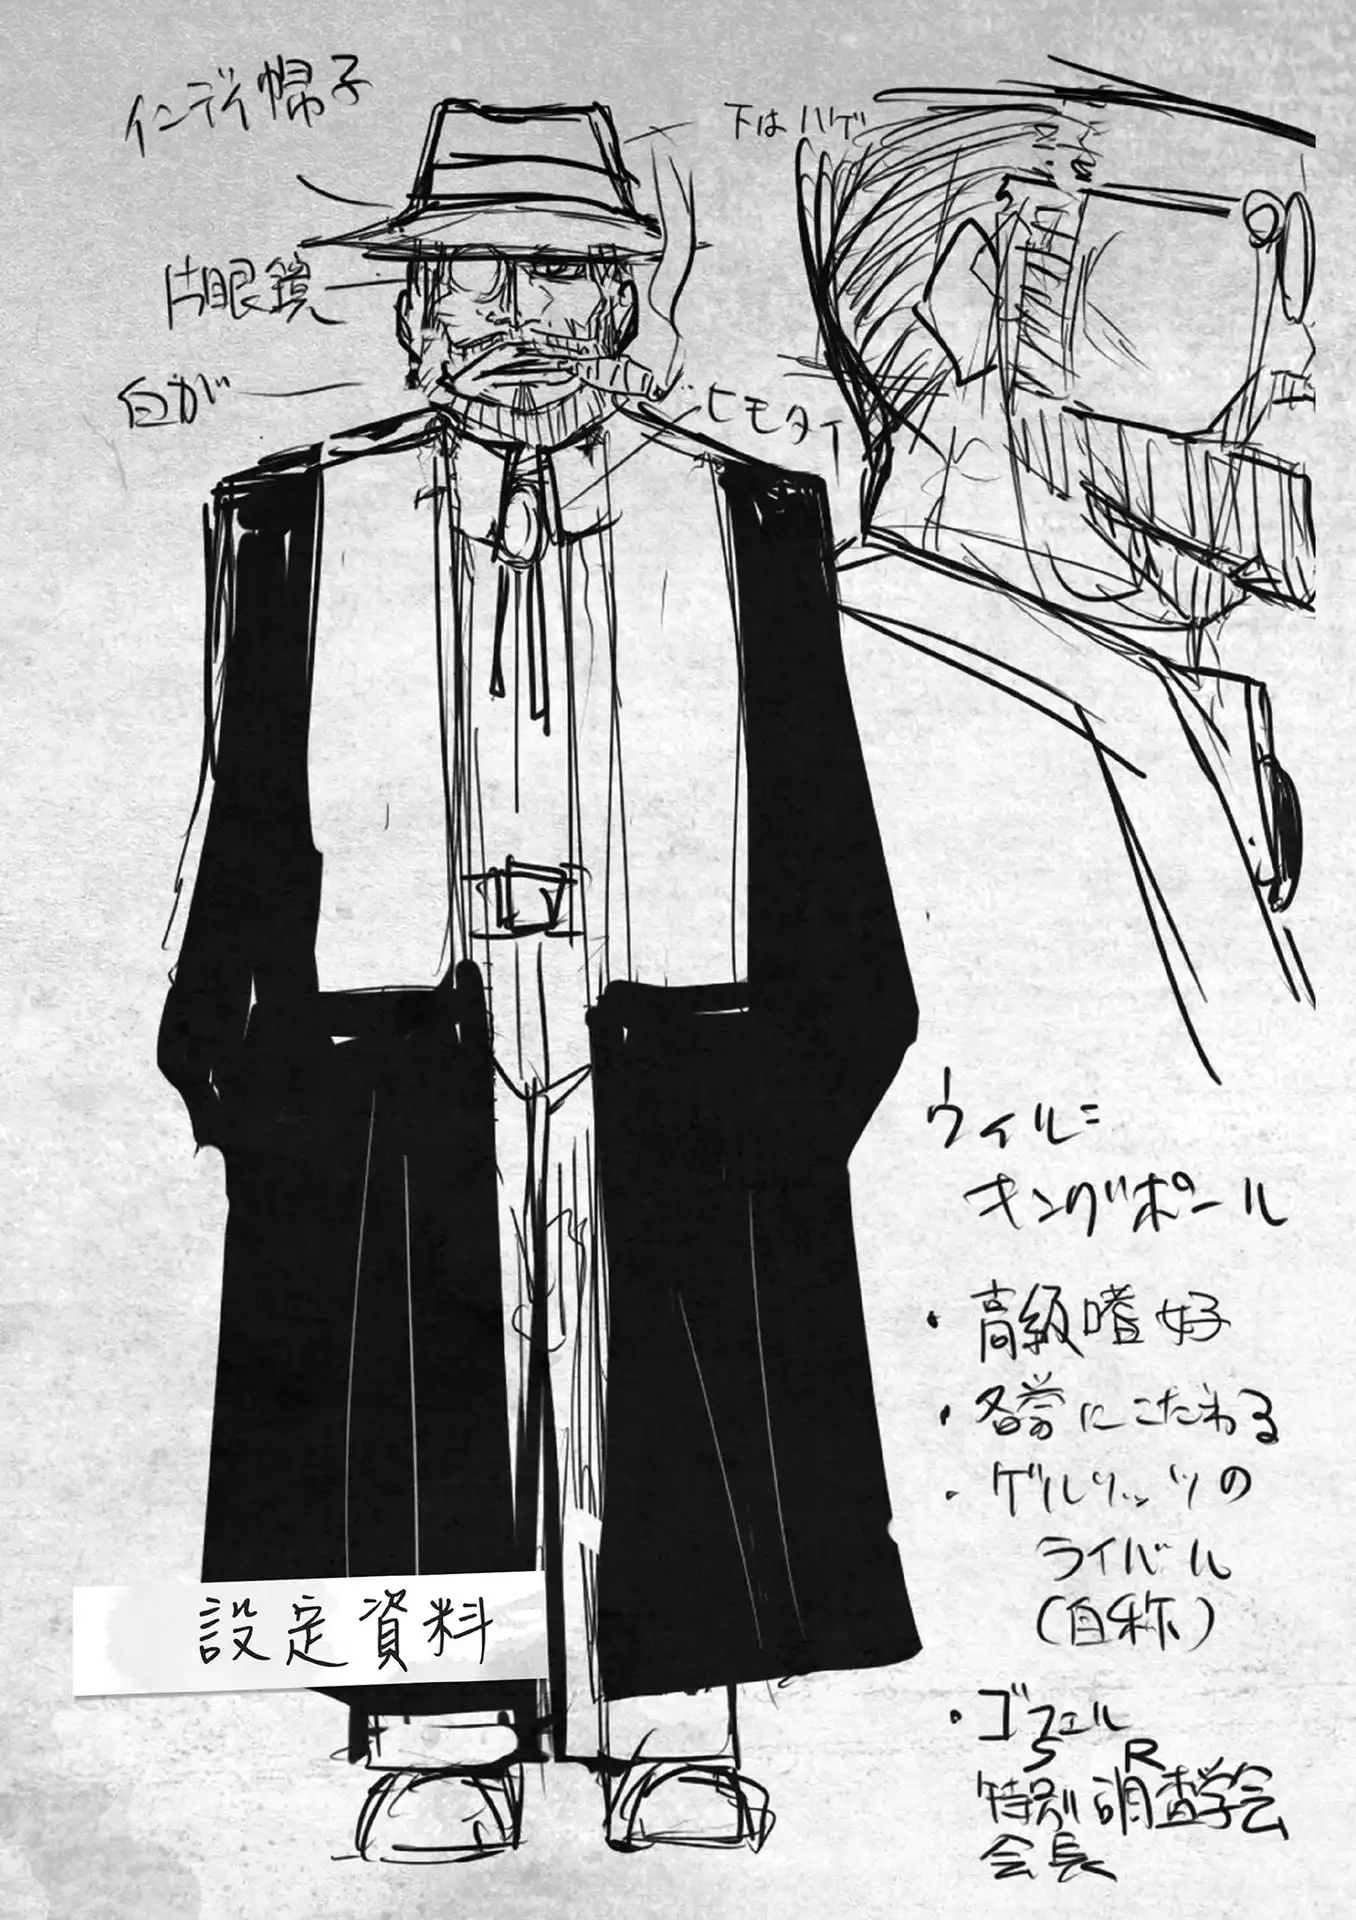 インディ帽子
下はハゲ
片眼鏡
白が
ヒモタイ
ウィル=
キングポール
・高級嗜好
・名誉にこだわる
・ゲルリッツの
ライバル
(自称)
・ゴフェル
S R
特別調査学会
会長
設定資料